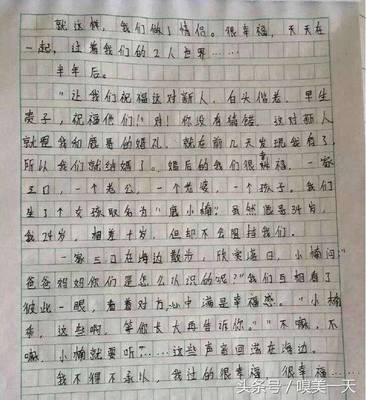 就这样，我们做了情侣。很幸福，天天在
一起，过着我们的2人世界……
半年后。
“让我们祝福这对新人，白头偕老，早生
贵子，祝福他们！”对！你没有搞错，这对新人
就是我和鹿晗的婚礼，就在前几天发现我有了，
所以我们就结婚了。婚后的我们很幸福，一家
三口，一个老公，一个老婆，一个孩子。我们
生了个女孩取名为“鹿小楠”。虽然他是34岁，
我24岁，相差十岁，但却不会阻挡我们。
一家三口在海边散步，欣赏落日，小楠问：“
爸爸妈妈你们是怎么认识的呢？”我们互相看了
彼此一眼，看着对方，心中满是幸福感。“小楠
乖，这些啊，等你长大再告诉你。”“不嘛，不
嘛，小楠就要听”……这些声音回荡在海边。
我不得不承认，我过的很幸福，很幸福……
头条号/嗅美一天